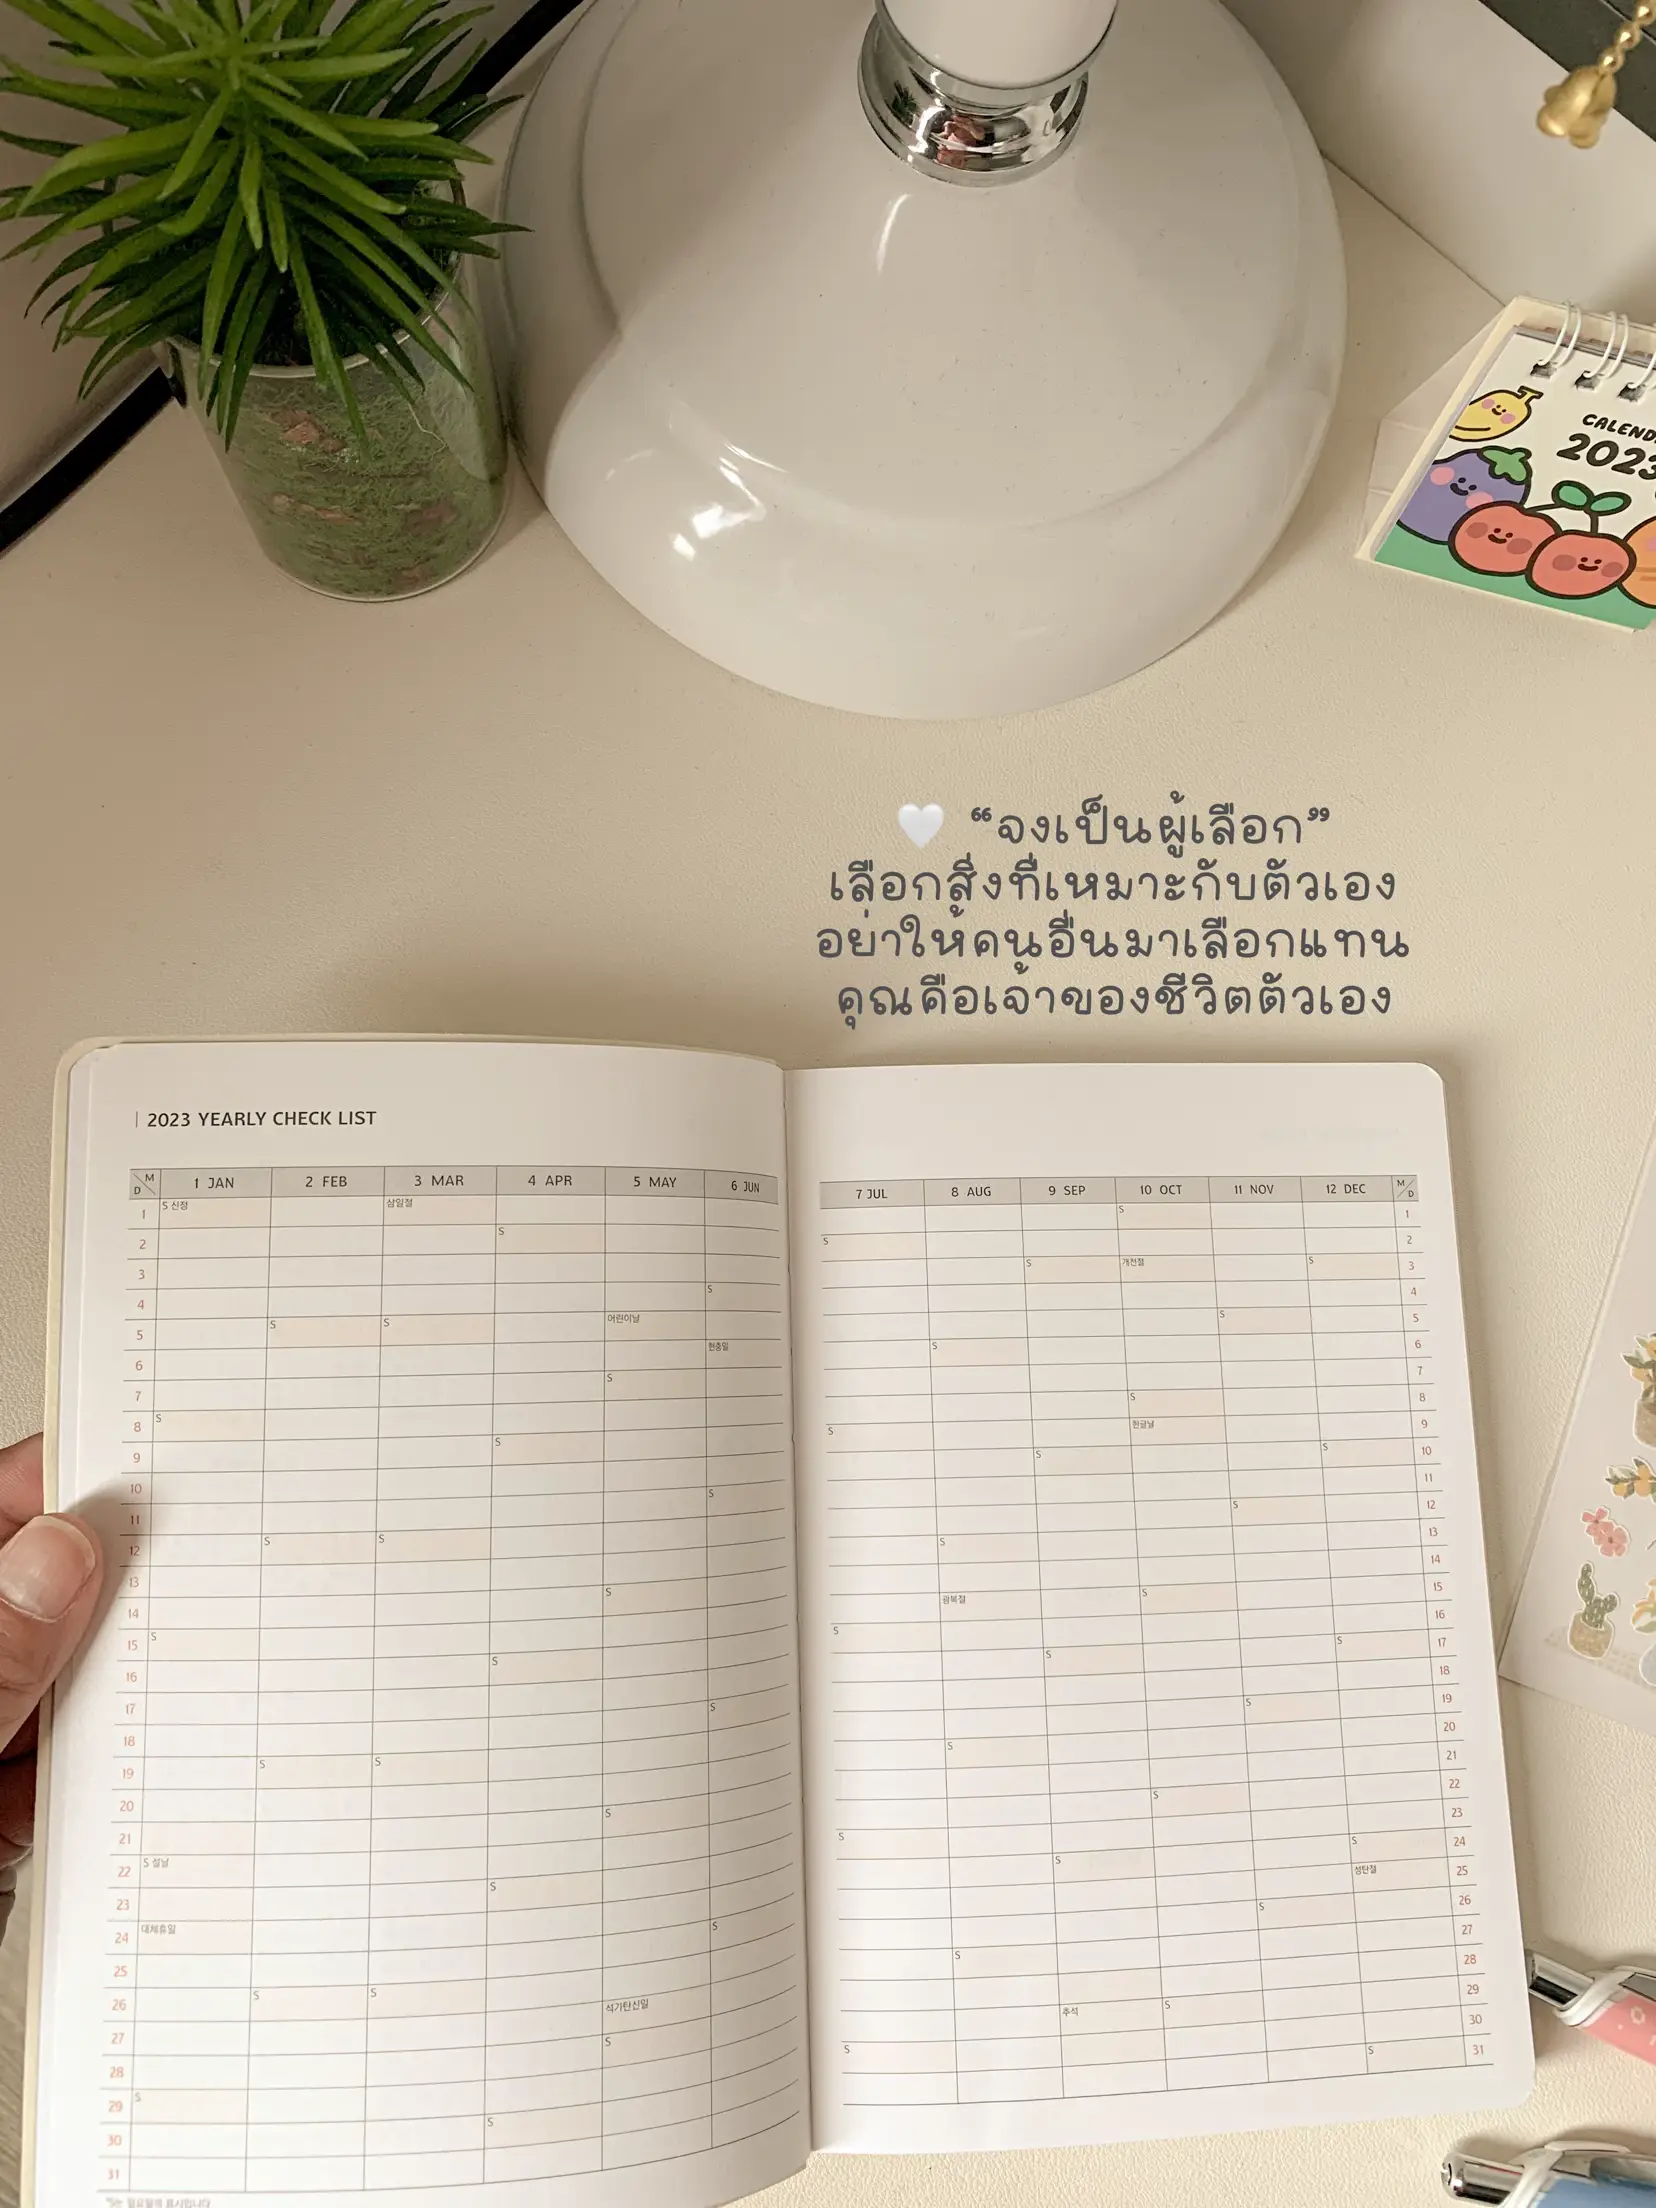 CALEND
2023
🤍 “จงเป็นผู้เลือก”
เลือกสิ่งที่เหมาะกับตัวเอง
อย่าให้คนอื่นมาเลือกแทน
คุณคือเจ้าของชีวิตตัวเอง
2023 YEARLY CHECK LIST
M D 1 JAN 2 FEB 3 MAR 4 APR 5 MAY 6 JUN 7 JUL 8 AUG 9 SEP 10 OCT 11 NOV 12 DEC M D
1 S 신정 삼일절 S 1
2 S S 2
3 S 개천절 S 3
4 S 4
5 S S 어린이날 S 5
6 현충일 S 6
7 S 7
8 S S 8
9 S S 한글날 9
10 S S 10
11 S 11
12 S S S 12
13 S 13
14 S 14
15 S 광복절 S 15
16 S S 16
17 S S 17
18 S 18
19 S S S 19
20 S 20
21 S 21
22 S 설날 S 22
23 S S 23
24 대체휴일 S 24
25 S 성탄절 25
26 S S S 26
27 석가탄신일 S 27
28 S 28
29 S 추석 S 29
30 S S 30
31 S 31
*S는 일요일의 표시입니다